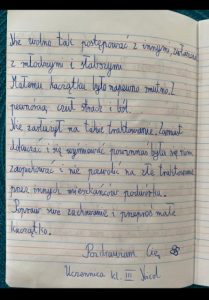 Nie wolno tak postępować z innymi, zwłaszcza
z młodszymi i słabszymi
Małemu kaczątku było napewno smutno. Z
pewnością czuł strach i ból.
Nie zasłużył na takie traktowanie. Zamiast
dokuczać i się wyśmiewać powinnaś była się nim
zaopiekować i nie pozwolić na złe traktowanie
przez innych mieszkańców podwórka.
Popraw swe zachowanie i przeproś małe
kaczątko.
Pozdrawiam Cię,
Uczennica kl. III